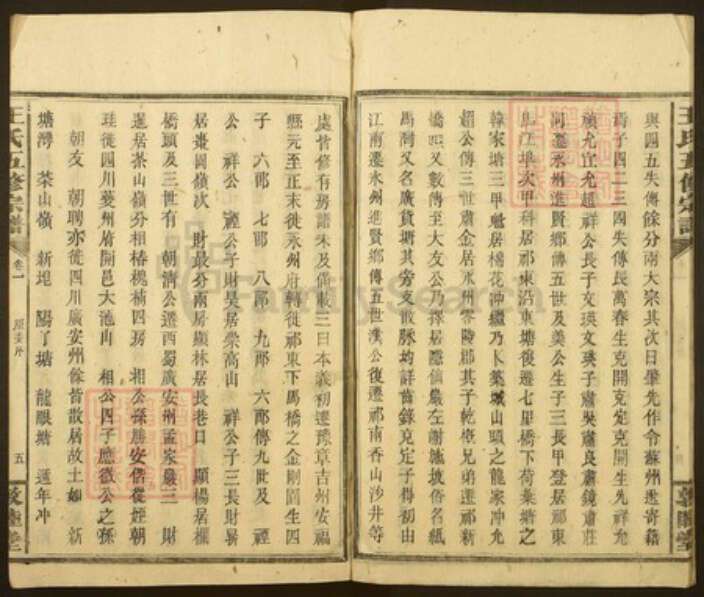 王氏五修宗譜
與四五失傳餘分兩大宗其次曰肇先作令蘇州遷寄籍
焉子四二三四失傳長萬春生克開克定克開生先祥允
禎允宜允超祥公長子文瑛文瑛子肅奐肅良肅鏡肅莊
同遷永州進賢鄉傳五世及美公生子三長甲登居祁東
烏江埠次甲科居祁東沿東塘復遷七里橋下荷葉塘之
韓家塘三甲魁居橘花沖繼乃卜築城山頭之龍家冲允
超公傳三世肅金居永州零陵郡其子乾樞兄弟遷祁新
橋 又數傳至大友公乃擇居隱 巖左謝 坡俗名紙
馬灣又名廣貨塘其旁支散脈均詳齒錄克定子得初由
江南遷永州進賢鄉傳五世濮公復遷祁南香山沙井等
處皆修有房譜未及備載三曰本義初遷豫章吉州安福
縣元至正末徙永州府轉徙祁東下馬橋之金剛圓生四
子 六郎 七郎 八郎 九郎 六郎傳九世及 禋
公 祥公 禋公子財昊居崇高山 祥公子三長財
居棗園嶺次 財最分兩房顯林居長巷口 顯楊居楓
橋頭及三世有 朝清公遷西蜀廣安州孟家巖三 財
暹居茶山嶺分相椿槐楠四房 相公孫勝安偕從姪朝
珪徙四川夔州府開邑大池山 相公四子應徵公之孫
朝友 朝聘亦徙四川廣安州餘皆散居故土如 新
塘灣 茶山嶺 新坭 陽了塘 龍眼塘 通年冲
王氏五修宗譜
卷一
五
敦睦堂